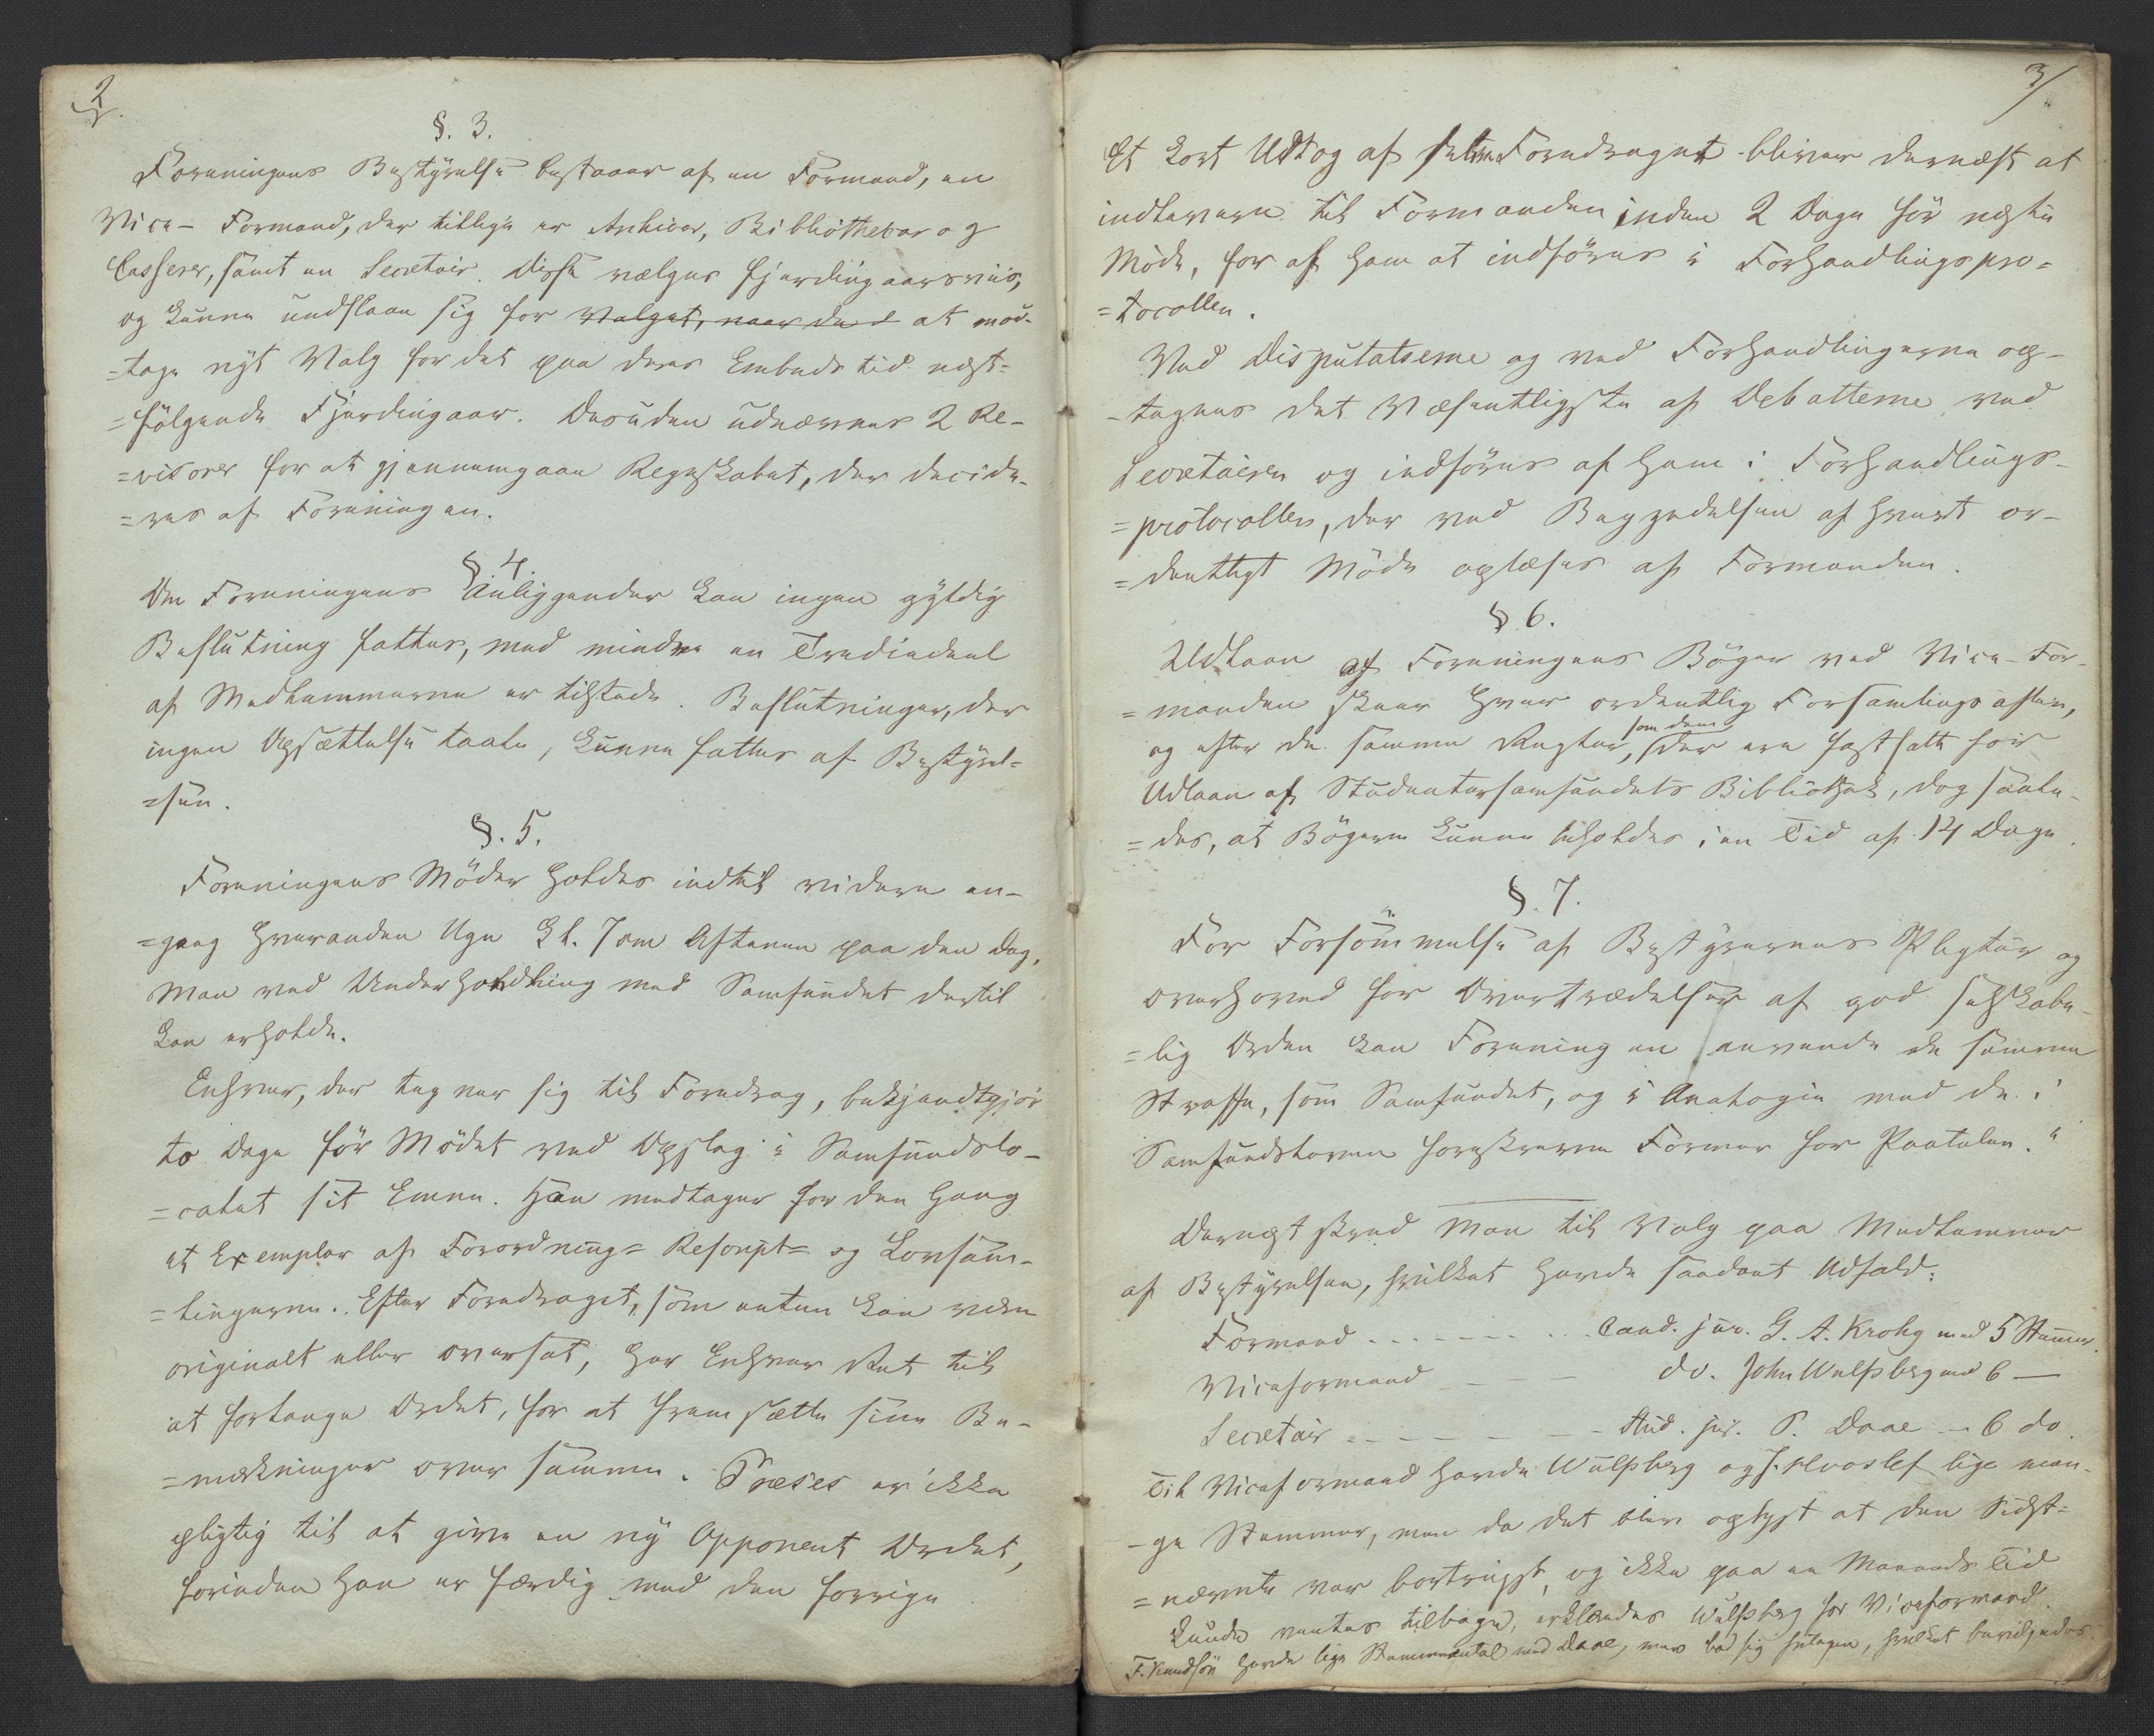 2
§. 3.
Foreningens Bestyrelse bestaaer af en Formand, en
Vice- Formand, der tillige er Arkivar, Bibliothekar og
Casserer, samt en Secretair. Disse vælges fjerdingaarsviis,
og kunne undslaae sig for Valget, naar de at mod-
=tage nyt Valg for det paa deres Embeds tid næst=
=følgende Fjerdingaar. Desuden udnævnes 2 Re-
=visorer for at gjennemgaae Regnskabet, der decide-
=res af Foreningen.
§. 4.
Om Foreningens Anliggender kan ingen gyldig
Beslutning fattes, med mindre en Trediedeel
af Medlemmerne er tilstede. Beslutninger, der
ingen Opsættelse taale, kunne fattes af Bestyrel=
=sen.
§. 5.
Foreningens Møder holdes indtil videre en-
=gang hveranden Uge Kl. 7 om Aftenen paa den Dag,
Man ved Underhandling med Samfundet dertil
kan erholde.
Enhver, der tegner sig til Foredrag, bekjendtgjør
to Dage før Mødet ved Opslag i Samfundslo-
=calet sit Emne. Han medtager for den Gang
et Exemplar af Forordning= Rescript= og Lovsam-
=lingerne. Efter Foredraget, som enten kan være
originalt eller oversat, har Enhver Ret til
at forlange Ordet, for at fremsætte sine Be-
=mærkninger over samme. Præses er ikke
pligtig til at give en ny Opponent Ordet,
forinden han er færdig med den forrige.
3/
Et kort Udtog af selve Foredraget bliver dernæst at
indlevere til Formanden inden 2 Dage før næste
Møde, for af ham at indføres i Forhandlingspro=
=tocollen.
Ved Disputatserne og ved Forhandlingerne op-
-tegnes det Væsentligste af Debatterne ved
Secretairen og indføres af ham i Forhandlings-
=protocollen, der ved Begyndelsen af hvert or-
=dentligt Møde oplæses af Formanden.
§ 6.
Udlaan af Foreningens Bøger ved Vice-For-
=manden skeer hver ordentlig Forsamlingsaften,
og efter de samme Regler, som dem der ere fastsatte for
Udlaan af Studentersamfundets Bibliothek, dog saale-
=des, at Bøgerne kunne beholdes i en Tid af 14 Dage.
§. 7.
For Forsømmelse af Bestyrernes Pligter og
overhoved for Overtrædelser af god selskabe-
=lig Orden kan Foreningen anvende de samme
Straffe, som Samfundet, og i Analogie med de i
Samfundsloven foreskrevne Former for Paatalen."
Dernæst skred Man til Valg paa Medlemmer
af Bestyrelsen, hvilket havde saadant Udfald:
Formand - - - - - - - - Cand. jur. G. A. Krohg med 5 Stemmer.
Viceformand - - - do. John Wulfsberg med 6 —
Secretair - - - - - - - Stud. jur. P. Daae — 6 do.
Til Viceformand havde Wulfsberg og F. Hvoslef lige man-
-ge Stemmer, men da det blev oplyst at den Sidst=
=nævnte var bortreist, og ikke paa en Maaneds Tid
kunde ventes tilbage, erklæredes Wulfsberg for Viceformand.
F. Knudsøn havde lige Stemmeantal med Daae, men bad sig fritagen, hvilket bevilgedes.